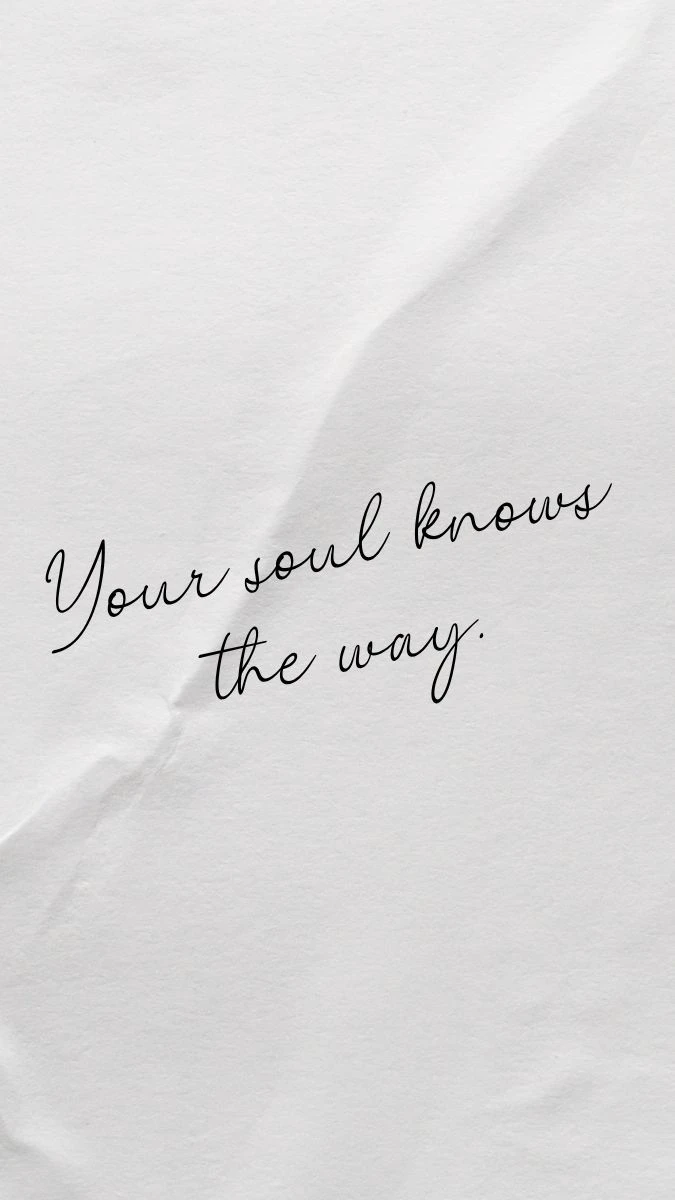 Your soul knows
the way.